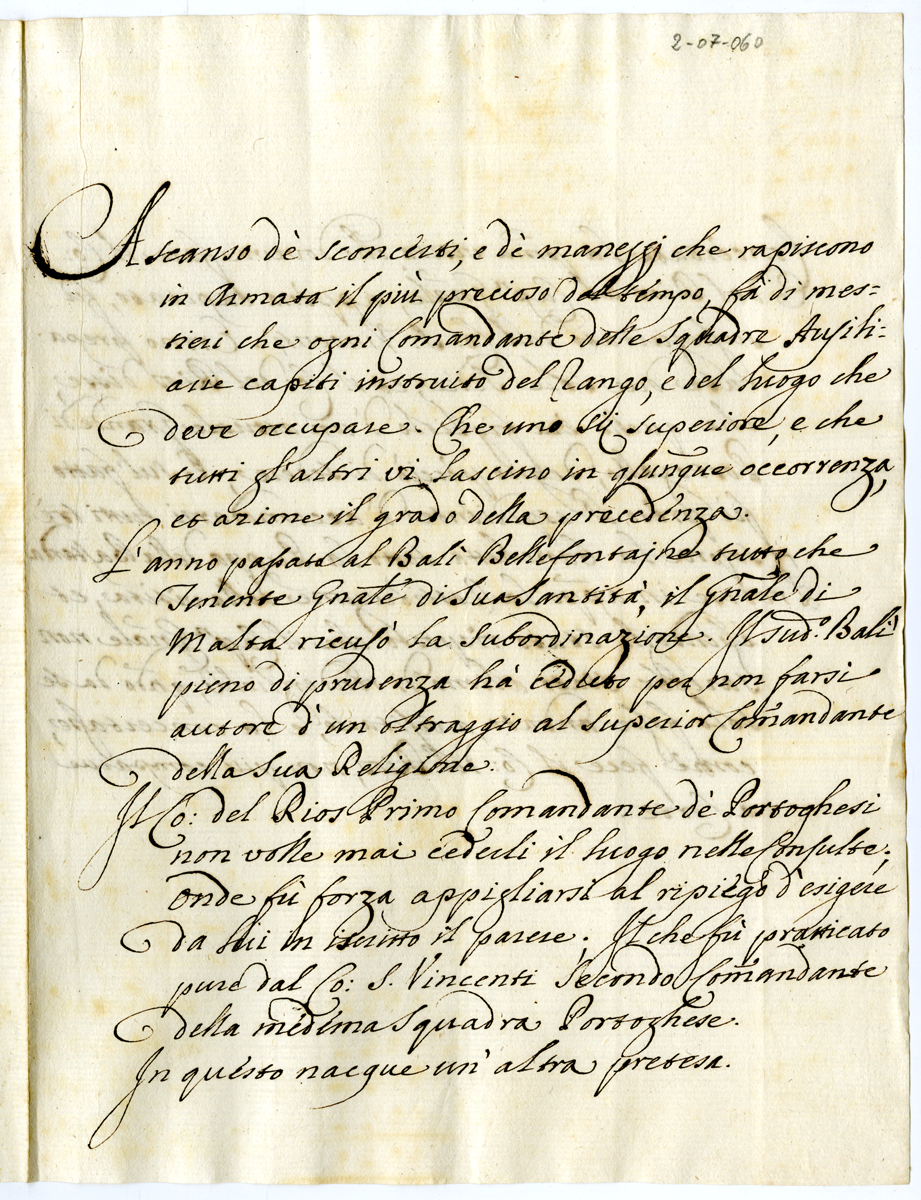 2-07-060
A scanso dè sconcerti, e dè maneggj che rapiscono
in Armata il più precioso del tempo, fà di mes=
tieri che ogni Comandante delle Squadre Ausili=
arie capiti instruito del Rango, e del luogo che
deve occupare. Che uno sij superiore, e che
tutti gl'altri vi lascino in qlunque occorrenza,
et azione il grado della precedenza.
L'anno passato al Balì Bellefontajne tutto che
Tenente Gnale di Sua Santità, il Gnale di
Malta ricusò la subordinazione. Il sud.º Balì
pieno di prudenza hà ceduto per non farsi
autore d'un oltraggio al superior Comandante
della sua Religione.
Il Co: del Rios Primo Comandante dè Portoghesi
non volle mai cederli il luogo nelle Consulte;
Onde fù forza appigliarsi al ripiego d'esigere
da lui in iscritto il parere. Il che fù pratticato
pure dal Co: S. Vincenti Secondo Comandante
della medema Squadra Portoghese.
In questo nacque un'altra pretesa.